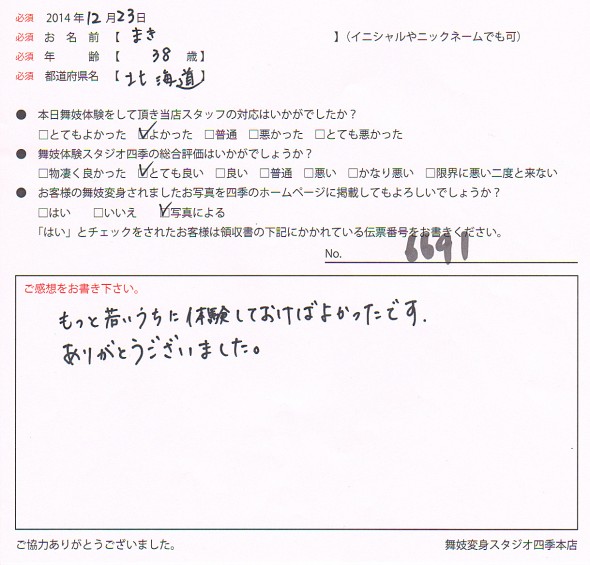 必須 2014年12月23日
必須 お名前【 まき 】（イニシャルやニックネームでも可）
必須 年齢【 38 歳】
必須 都道府県名【 北海道】
● 本日舞妓体験をして頂き当店スタッフの対応はいかがでしたか？
□とてもよかった ☑よかった □普通 □悪かった □とても悪かった
● 舞妓体験スタジオ四季の総合評価はいかがでしょうか？
□物凄く良かった ☑とても良い □良い □普通 □悪い □かなり悪い □限界に悪い二度と来ない
● お客様の舞妓変身されましたお写真を四季のホームページに掲載してもよろしいでしょうか？
□はい □いいえ ☑写真による
「はい」とチェックをされたお客様は領収書の下記にかかれている伝票番号をお書きください。
No. 6691
ご感想をお書き下さい。
もっと若いうちに体験しておけばよかったです.
ありがとうございました。
ご協力ありがとうございました。 舞妓変身スタジオ四季本店